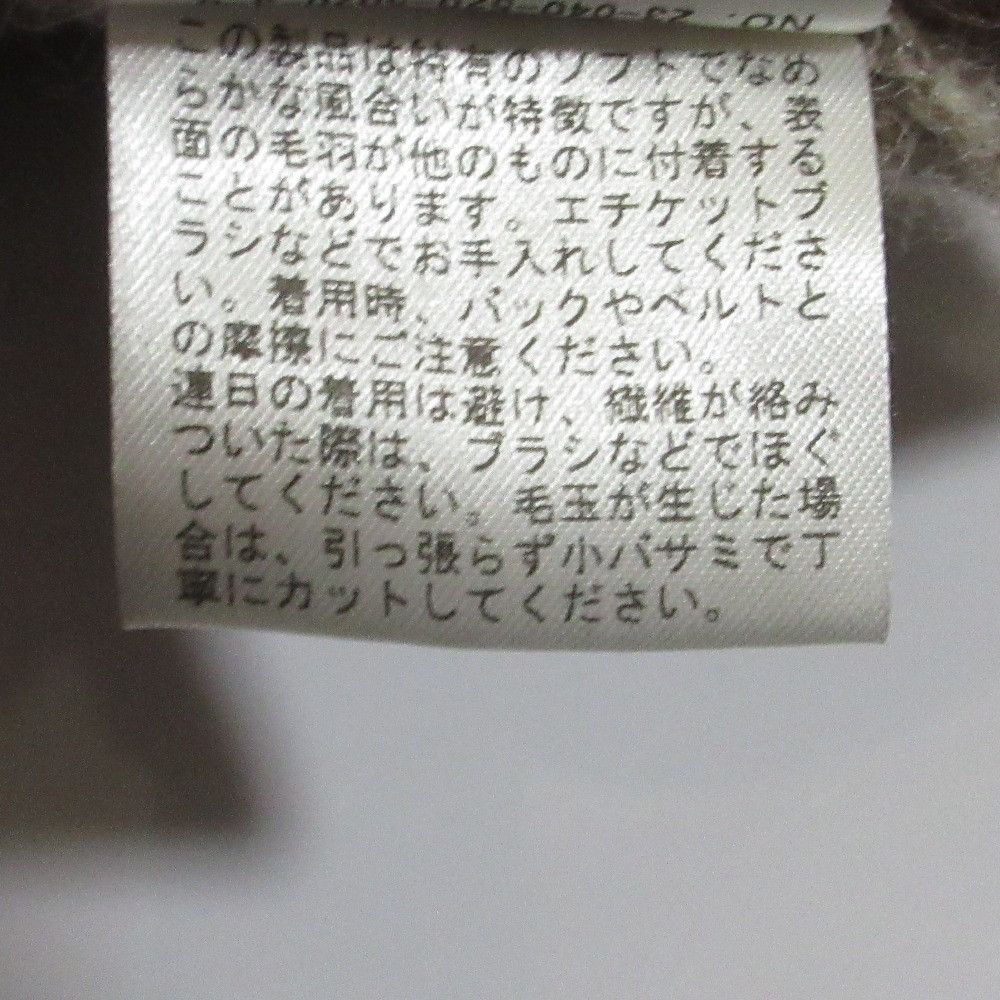 NO. 23-040-520
この製品は特有のソフトでなめ
らかな風合いが特徴ですが、表
面の毛羽が他のものに付着する
ことがあります。エチケットブ
ラシなどでお手入れしてくださ
い。着用時、バックやベルトと
の摩擦にご注意ください。
連日の着用は避け、繊維が絡み
ついた際は、ブラシなどでほぐ
してください。毛玉が生じた場
合は、引っ張らず小バサミで丁
寧にカットしてください。